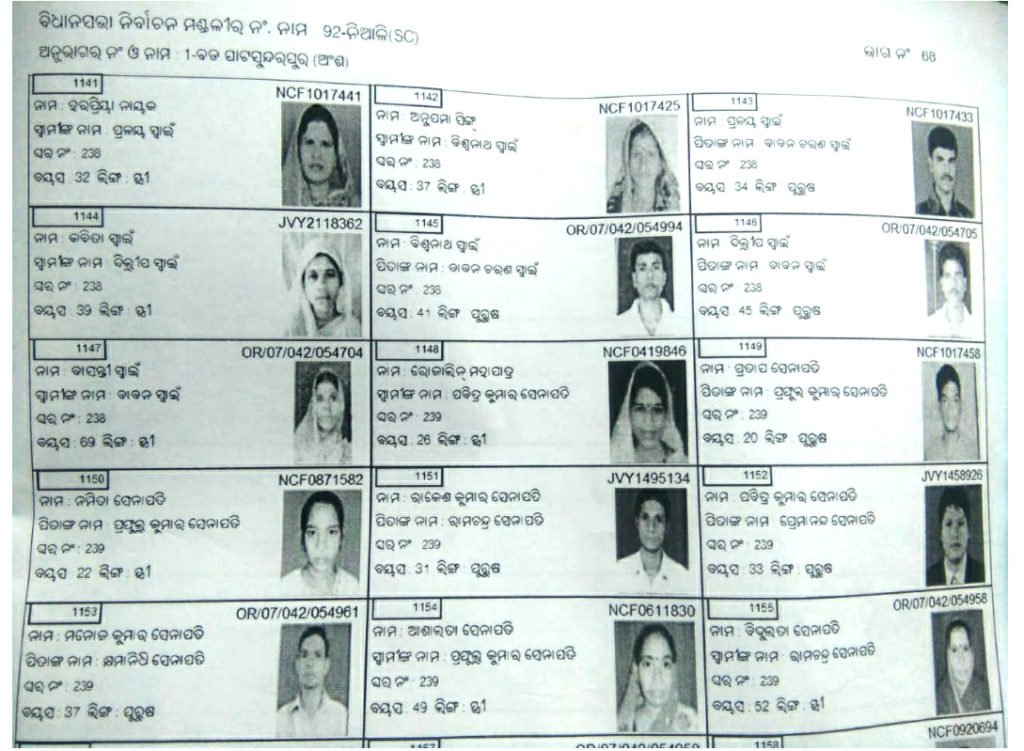 ବିଧାନସଭା ନିର୍ବାଚନ ମଣ୍ଡଳୀର ନଂ. ନାମ 92-ନିଆଳି(SC)
ଅନୁଭାଗର ନଂ ଓ ନାମ : 1-ବଡ ପାଟସୁନ୍ଦରପୁର (ଅଂଶ)
ଭାଗ ନଂ 68
1141 NCF1017441
ନାମ : ହରପ୍ରିୟା ନାୟକ
ସ୍ୱାମୀଙ୍କ ନାମ : ପ୍ରଳୟ ସ୍ୱାଇଁ
ଘର ନଂ : 238
ବୟସ : 32 ଲିଙ୍ଗ : ସ୍ତ୍ରୀ
1142 NCF1017425
ନାମ : ଅନୁପମା ସିଙ୍ଗ୍
ସ୍ୱାମୀଙ୍କ ନାମ : ବିଶ୍ୱନାଥ ସ୍ୱାଇଁ
ଘର ନଂ : 238
ବୟସ : 37 ଲିଙ୍ଗ : ସ୍ତ୍ରୀ
1143 NCF1017433
ନାମ : ପ୍ରଳୟ ସ୍ୱାଇଁ
ପିତାଙ୍କ ନାମ : ବାବନ ଚରଣ ସ୍ୱାଇଁ
ଘର ନଂ : 238
ବୟସ : 34 ଲିଙ୍ଗ : ପୁରୁଷ
1144 JVY2118362
ନାମ : କବିତା ସ୍ୱାଇଁ
ସ୍ୱାମୀଙ୍କ ନାମ : ଦିଲ୍ଲୀପ ସ୍ୱାଇଁ
ଘର ନଂ : 238
ବୟସ : 39 ଲିଙ୍ଗ : ସ୍ତ୍ରୀ
1145 OR/07/042/054994
ନାମ : ବିଶ୍ୱନାଥ ସ୍ୱାଇଁ
ପିତାଙ୍କ ନାମ : ବାବନ ଚରଣ ସ୍ୱାଇଁ
ଘର ନଂ : 238
ବୟସ : 41 ଲିଙ୍ଗ : ପୁରୁଷ
1146 OR/07/042/054705
ନାମ : ଦିଲ୍ଲୀପ ସ୍ୱାଇଁ
ପିତାଙ୍କ ନାମ : ବାବନ ସ୍ୱାଇଁ
ଘର ନଂ : 238
ବୟସ : 45 ଲିଙ୍ଗ : ପୁରୁଷ
1147 OR/07/042/054704
ନାମ : ବାସନ୍ତୀ ସ୍ୱାଇଁ
ସ୍ୱାମୀଙ୍କ ନାମ : ବାବନ ସ୍ୱାଇଁ
ଘର ନଂ : 238
ବୟସ : 69 ଲିଙ୍ଗ : ସ୍ତ୍ରୀ
1148 NCF0419846
ନାମ : ରୋଜାଲିନ୍ ମହାପାତ୍ର
ସ୍ୱାମୀଙ୍କ ନାମ : ପବିତ୍ର କୁମାର ସେନାପତି
ଘର ନଂ : 239
ବୟସ : 26 ଲିଙ୍ଗ : ସ୍ତ୍ରୀ
1149 NCF1017458
ନାମ : ପ୍ରତାପ ସେନାପତି
ପିତାଙ୍କ ନାମ : ପ୍ରଫୁଲ୍ଲ କୁମାର ସେନାପତି
ଘର ନଂ : 239
ବୟସ : 20 ଲିଙ୍ଗ : ପୁରୁଷ
1150 NCF0871582
ନାମ : ନମିତା ସେନାପତି
ପିତାଙ୍କ ନାମ : ପ୍ରଫୁଲ୍ଲ କୁମାର ସେନାପତି
ଘର ନଂ : 239
ବୟସ : 22 ଲିଙ୍ଗ : ସ୍ତ୍ରୀ
1151 JVY1495134
ନାମ : ରାକେଶ କୁମାର ସେନାପତି
ପିତାଙ୍କ ନାମ : ରାମଚନ୍ଦ୍ର ସେନାପତି
ଘର ନଂ : 239
ବୟସ : 31 ଲିଙ୍ଗ : ପୁରୁଷ
1152 JVY1458926
ନାମ : ପବିତ୍ର କୁମାର ସେନାପତି
ପିତାଙ୍କ ନାମ : ପ୍ରେମାନନ୍ଦ ସେନାପତି
ଘର ନଂ : 239
ବୟସ : 33 ଲିଙ୍ଗ : ପୁରୁଷ
1153 OR/07/042/054961
ନାମ : ମନୋଜ କୁମାର ସେନାପତି
ପିତାଙ୍କ ନାମ : କ୍ଷମାନିଧି ସେନାପତି
ଘର ନଂ : 239
ବୟସ : 37 ଲିଙ୍ଗ : ପୁରୁଷ
1154 NCF0611830
ନାମ : ଆଶାଲତା ସେନାପତି
ସ୍ୱାମୀଙ୍କ ନାମ : ପ୍ରଫୁଲ୍ଲ କୁମାର ସେନାପତି
ଘର ନଂ : 239
ବୟସ : 49 ଲିଙ୍ଗ : ସ୍ତ୍ରୀ
1155 OR/07/042/054958
ନାମ : ବିଦୁଲତା ସେନାପତି
ସ୍ୱାମୀଙ୍କ ନାମ : ରାମଚନ୍ଦ୍ର ସେନାପତି
ଘର ନଂ : 239
ବୟସ : 52 ଲିଙ୍ଗ : ସ୍ତ୍ରୀ
1157
1158 NCF0920694